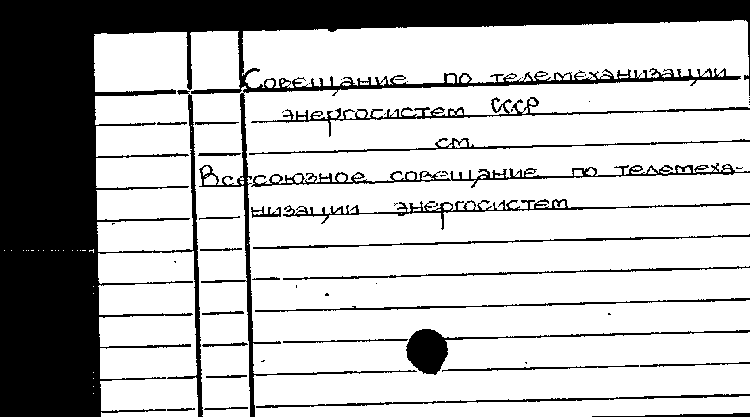 Совещание по телемеханизации
энергосистем СССР
см.
Всесоюзное совещание по телемеха-
низации энергосистем